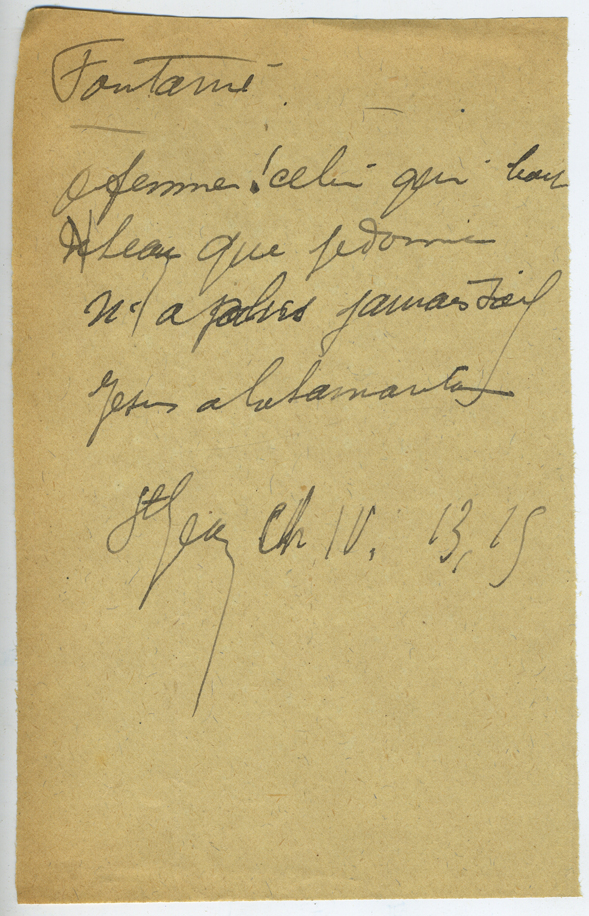 Fontaine
O femme! celui qui boit
de l'eau que je donne
n'a plus jamais soif
Jesus a la Samaritaine
St Jean Ch IV. 13, 15